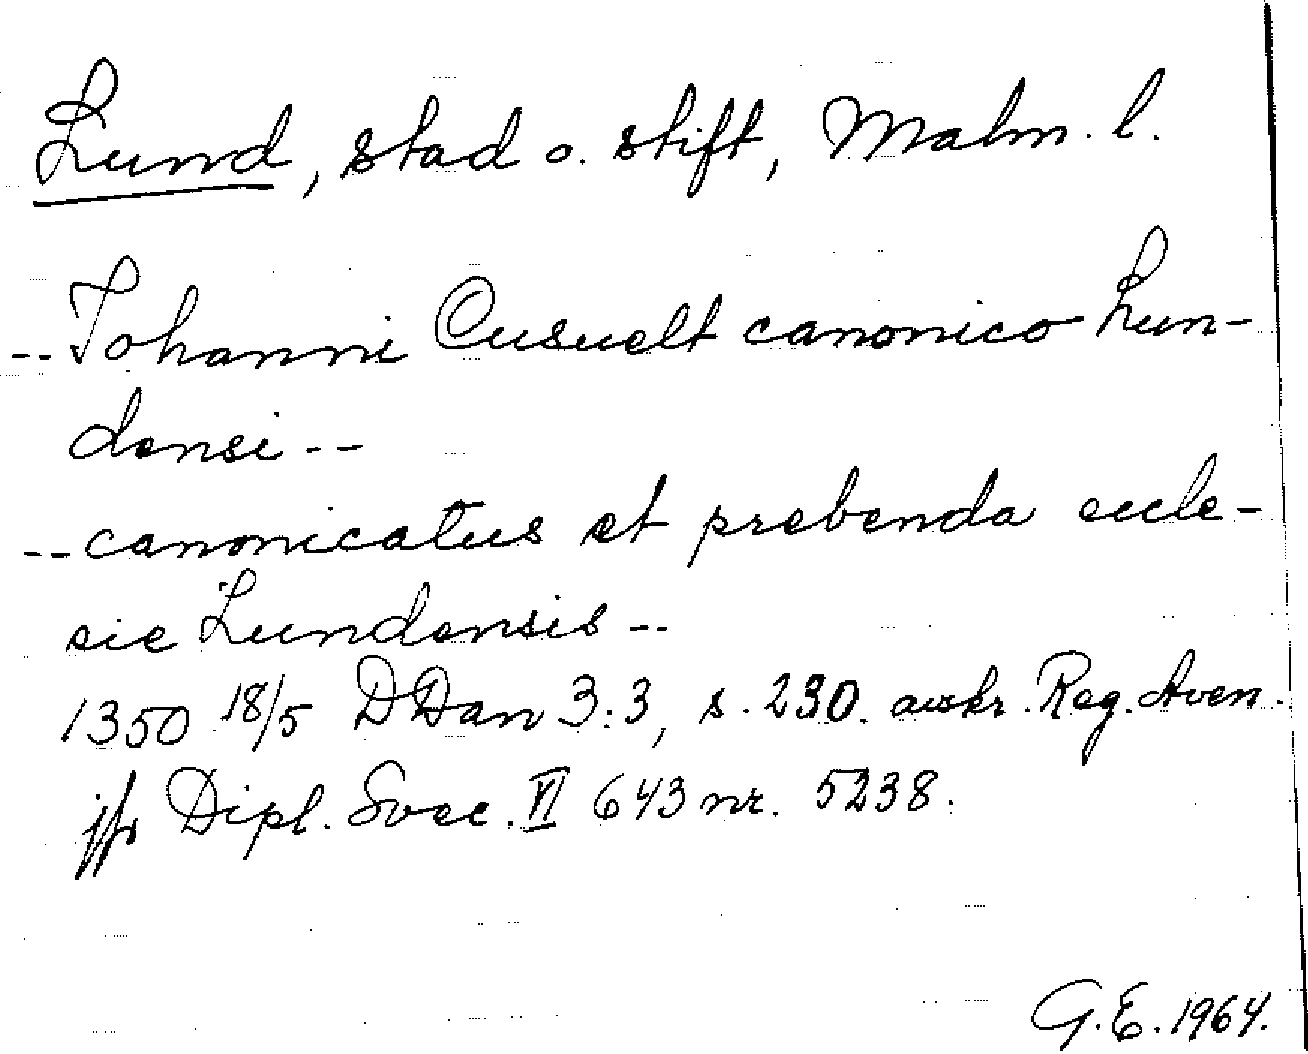 Lund, stad o. stift, Malm. l.
-- Johanni Cusuelt canonico Lun-
densi --
-- canonicatus et prebenda eccle-
sie Lundensis --
1350 18/5 DDan 3:3, s. 230. avskr. Reg. Aven.
jfr Dipl. Svec. VI 643 nr. 5238.
G.E. 1964.